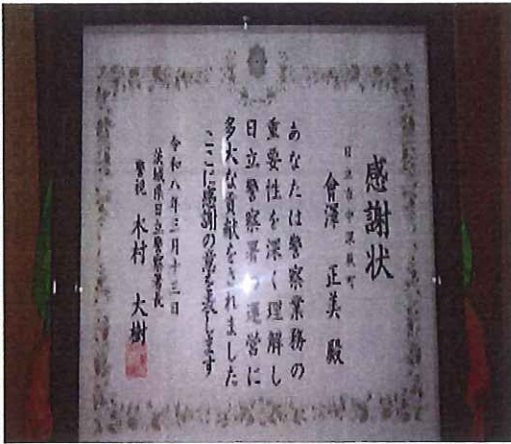 感謝状
日立市中深荻町
會澤正美殿
あなたは警察業務の
重要性を深く理解し
日立警察署の運営に
多大な貢献をされました
ここに感謝の意を表します
令和八年三月十三日
茨城県日立警察署長
警視 木村大樹